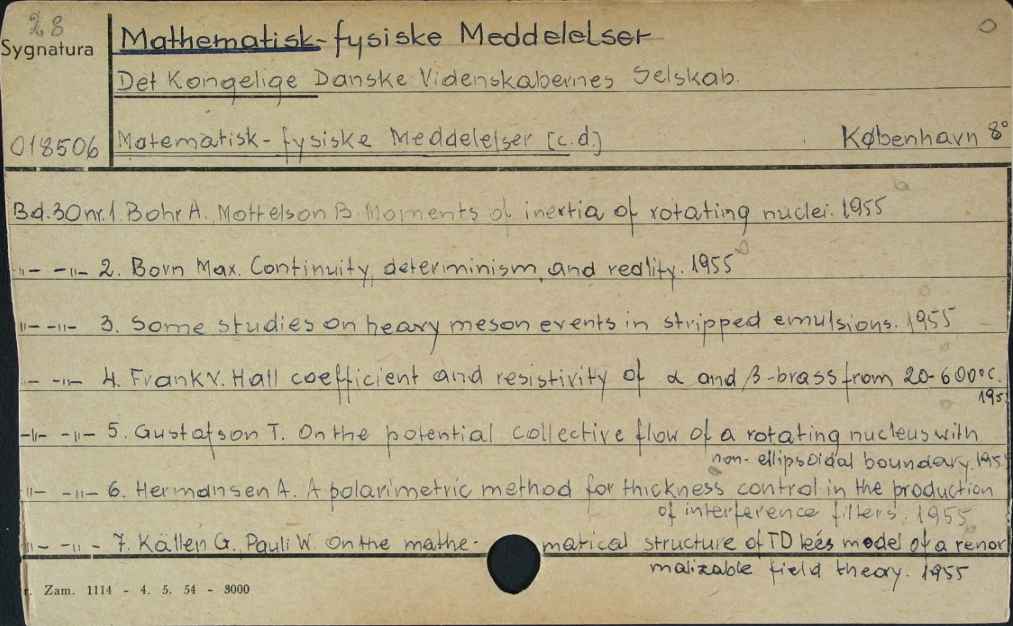 28
Sygnatura
Mathematisk-fysiske Meddelelser
O
Det Kongelige Danske Videnskabernes Selskab.
018506
Matematisk-fysiske Meddelelser [c.d.]
København 8°
Bd.30 nr.1. Bohr A. Mottelson B. Moments of inertia of rotating nuclei. 1955
-"- -"- 2. Born Max. Continuity, determinism and reality. 1955
-"- -"- 3. Some studies on heavy meson events in stripped emulsions. 1955
-"- -"- 4. Frank V. Hall coefficient and resistivity of α and β-brass from 20-600°C.
195
-"- -"- 5. Gustafson T. On the potential collective flow of a rotating nucleus with
non-ellipsoidal boundary. 195
-"- -"- 6. Hermansen A. A polarimetric method for thickness control in the production
of interference filters. 1955
-"- -"- 7. Källen G., Pauli W. On the mathematical structure of TD lee's model of a renor
malizable field theory. 1955
Zam. 1114 - 4. 5. 54 - 8000